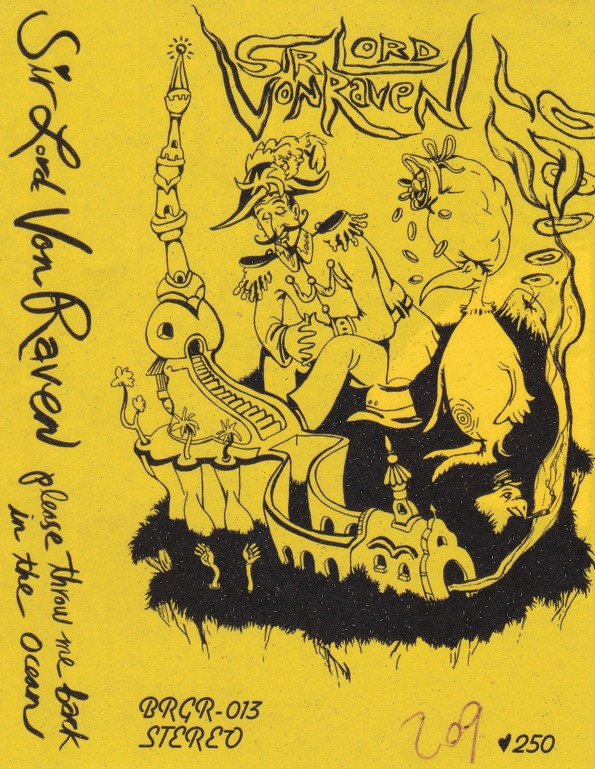 Sir Lord Von Raven please throw me back
in the ocean
SIR LORD
VON RAVEN
BRGR-013
STEREO
209
♥250